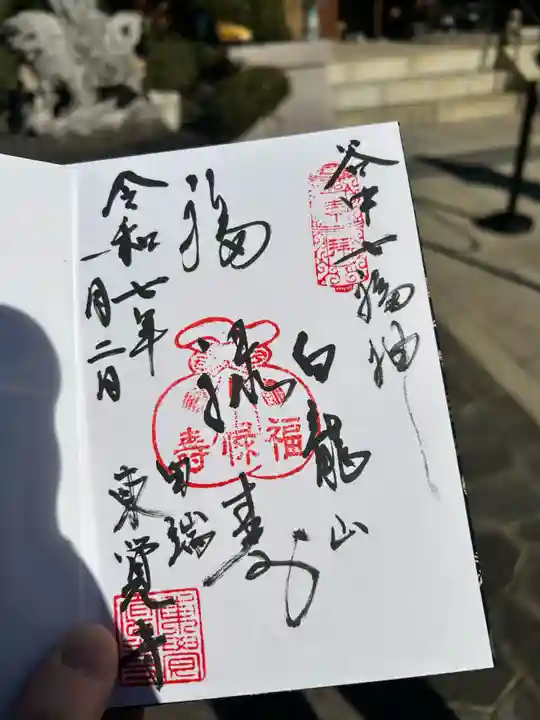 谷中七福神
白龍山
福禄寿
福禄寿
令和七年
一月二日
田端
東覚寺